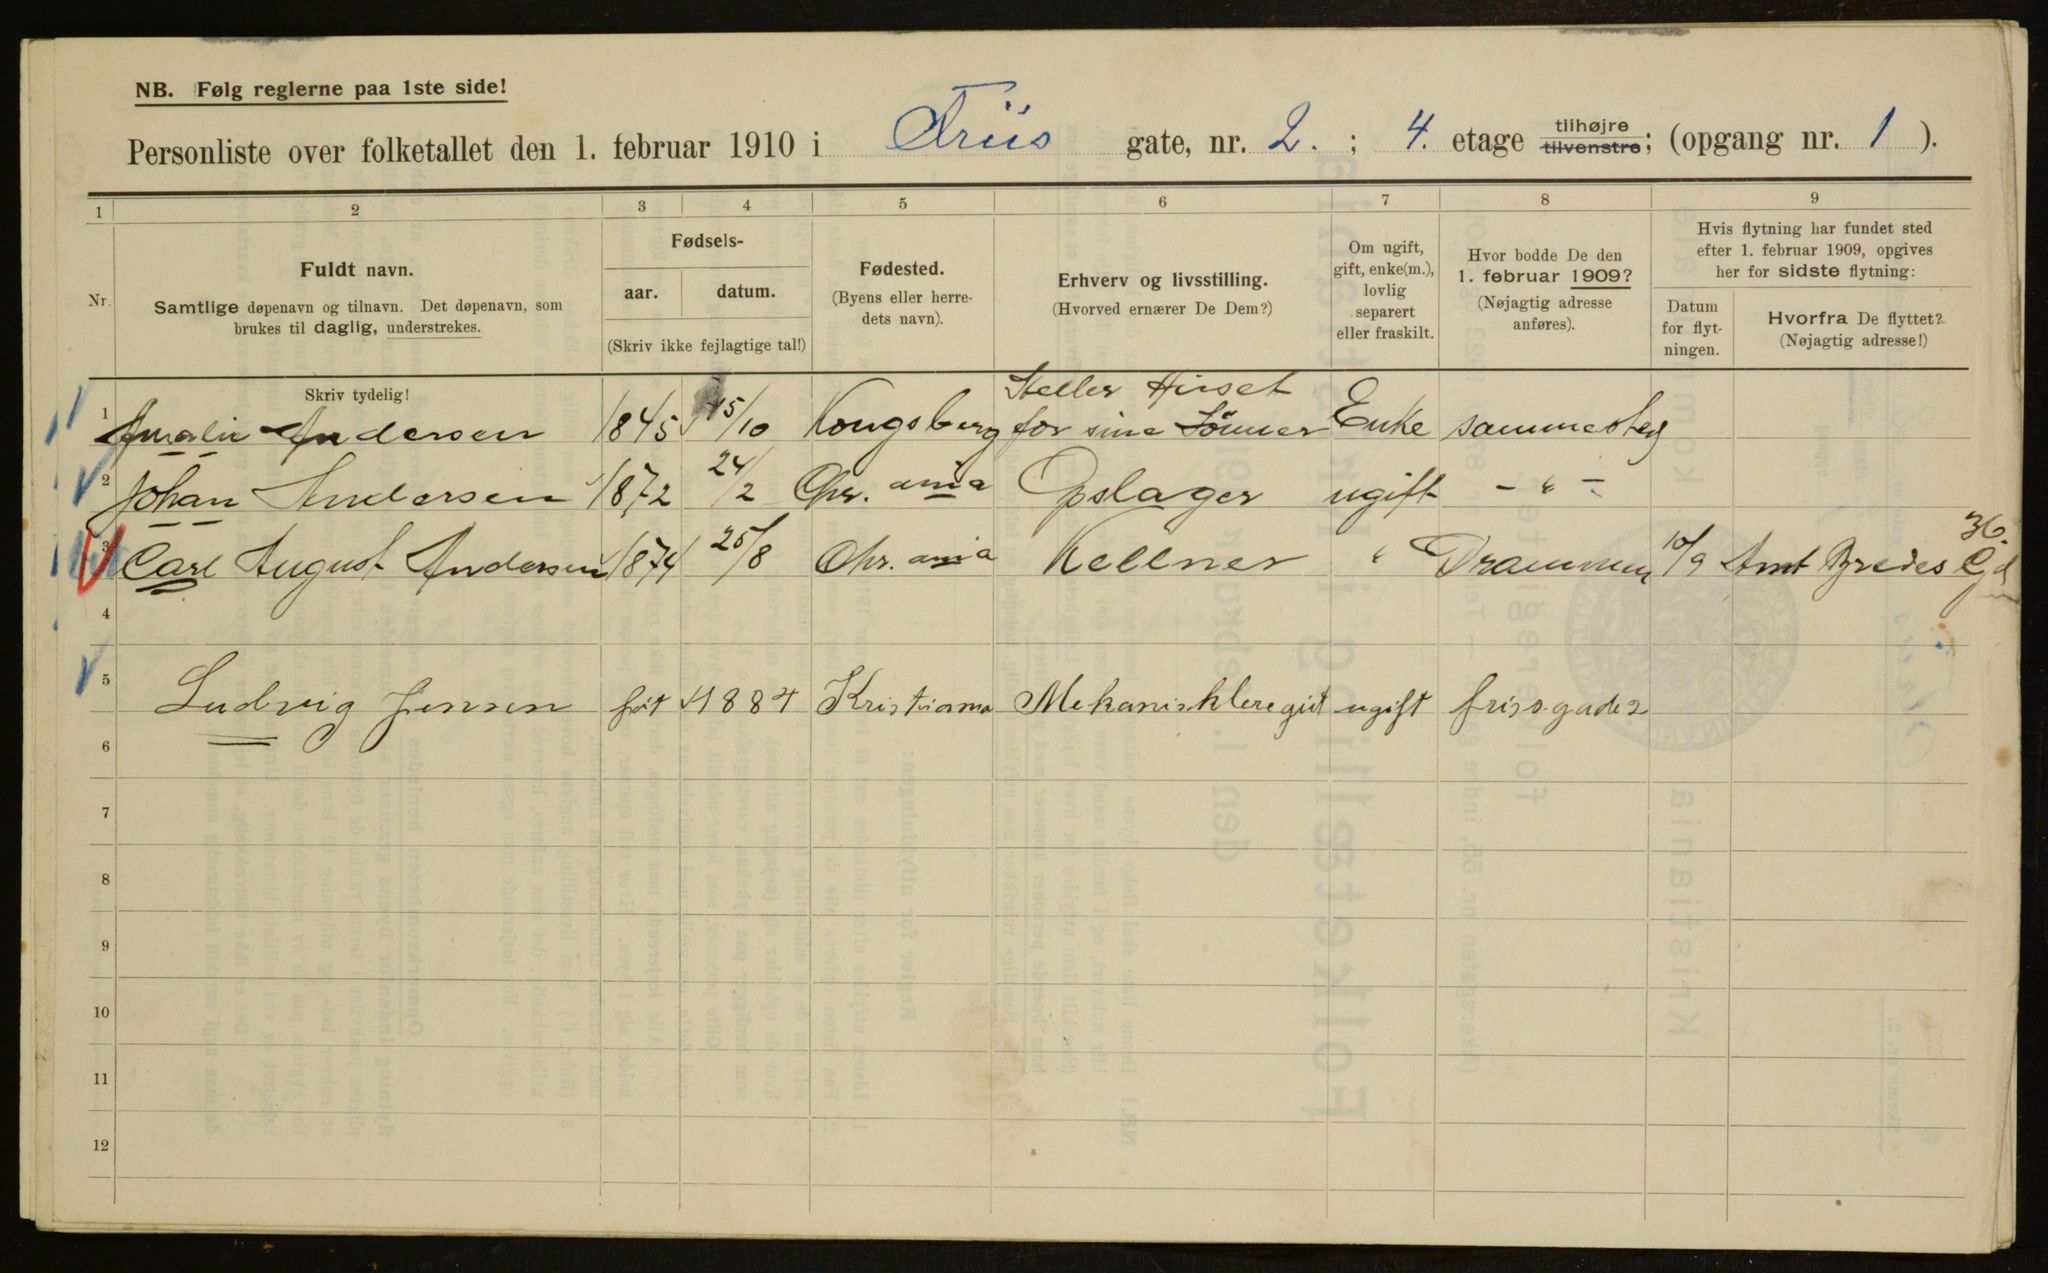 NB. Følg reglerne paa 1ste side!
Personliste over folketallet den 1. februar 1910 i Friis gate, nr. 2. ; 4. etage tilhøjre tilvenstre; (opgang nr. 1 ).
1 2 3 4 5 6 7 8 9
Nr.
Fuldt navn.
Samtlige døpenavn og tilnavn. Det døpenavn, som
brukes til daglig, understrekes.
Fødsels-
aar. datum.
(Skriv ikke fejlagtige tal!)
Fødested.
(Byens eller herre-
dets navn).
Erhverv og livsstilling.
(Hvorved ernærer De Dem?)
Om ugift,
gift, enke(m.),
lovlig
separert
eller fraskilt.
Hvor bodde De den
1. februar 1909?
(Nøjagtig adresse
anføres).
Hvis flytning har fundet sted
efter 1. februar 1909, opgives
her for sidste flytning:
Datum
for flyt-
ningen.
Hvorfra De flyttet?
(Nøjagtig adresse!)
Skriv tydelig!
1 Amalie Andersen 1845 15/10 Kongsberg Steller Huset for sine Sönner Enke sammested
2 Johan Andersen 1872 24/2 Chr. ania Opslager ugift - " -
3 Carl August Andersen 1874 25/8 Chr. ania Kellner " Drammen 10/9 Amt Bredes Gd 36.
4
5 Ludvig Jensen föt 1884 Kristiania ugift frissgade 2
6
7
8
9
10
11
12